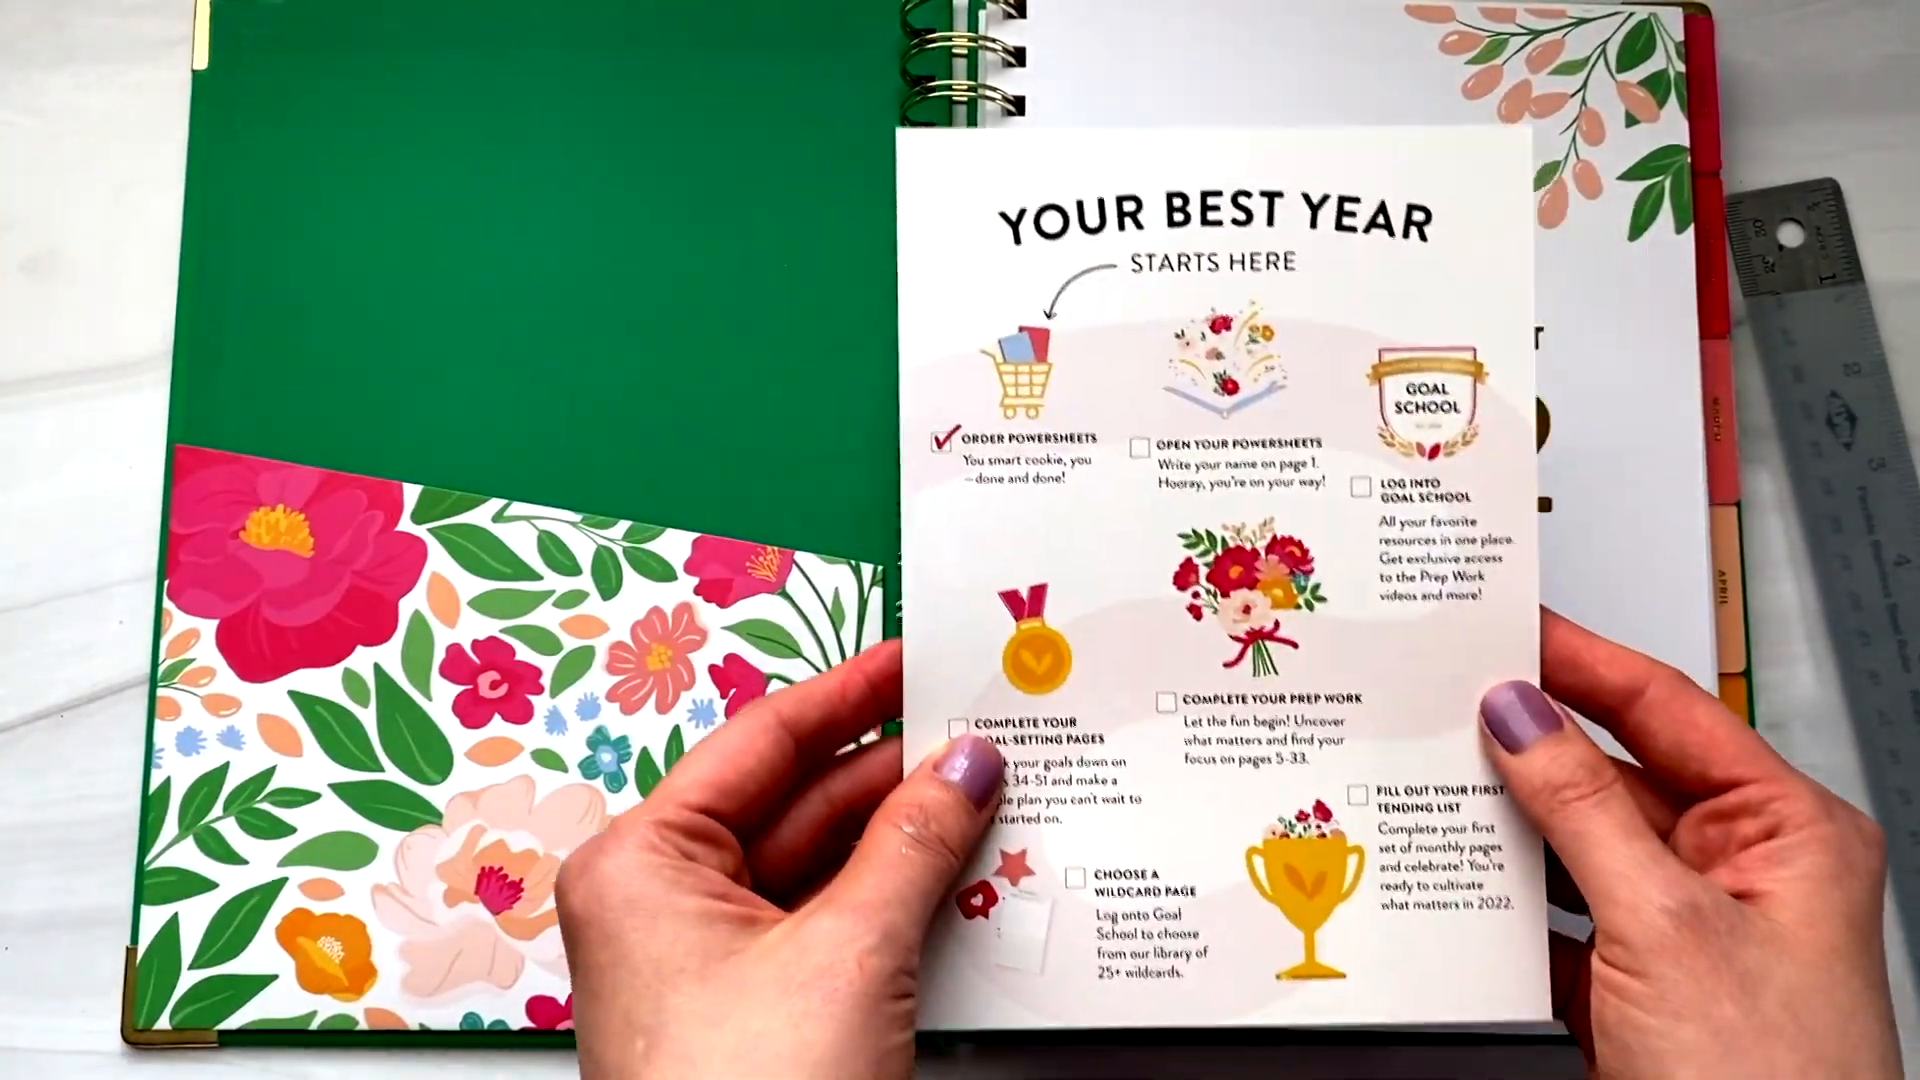 YOUR BEST YEAR
STARTS HERE
ORDER POWERSHEETS
You smart cookie, you
—done and done!
OPEN YOUR POWERSHEETS
Write your name on page 1.
Hooray, you're on your way!
GOAL
SCHOOL
LOG INTO
GOAL SCHOOL
All your favorite
resources in one place.
Get exclusive access
to the Prep Work
videos and more!
COMPLETE YOUR PREP WORK
Let the fun begin! Uncover
what matters and find your
focus on pages 5-33.
COMPLETE YOUR
AL-SETTING PAGES
k your goals down on
34-51 and make a
plan you can't wait to
started on.
FILL OUT YOUR FIRST
TENDING LIST
Complete your first
set of monthly pages
and celebrate! You're
ready to cultivate
what matters in 2022.
CHOOSE A
WILDCARD PAGE
Log onto Goal
School to choose
from our library of
25+ wildcards.
T
MARCH
APRIL
1
2
3
4